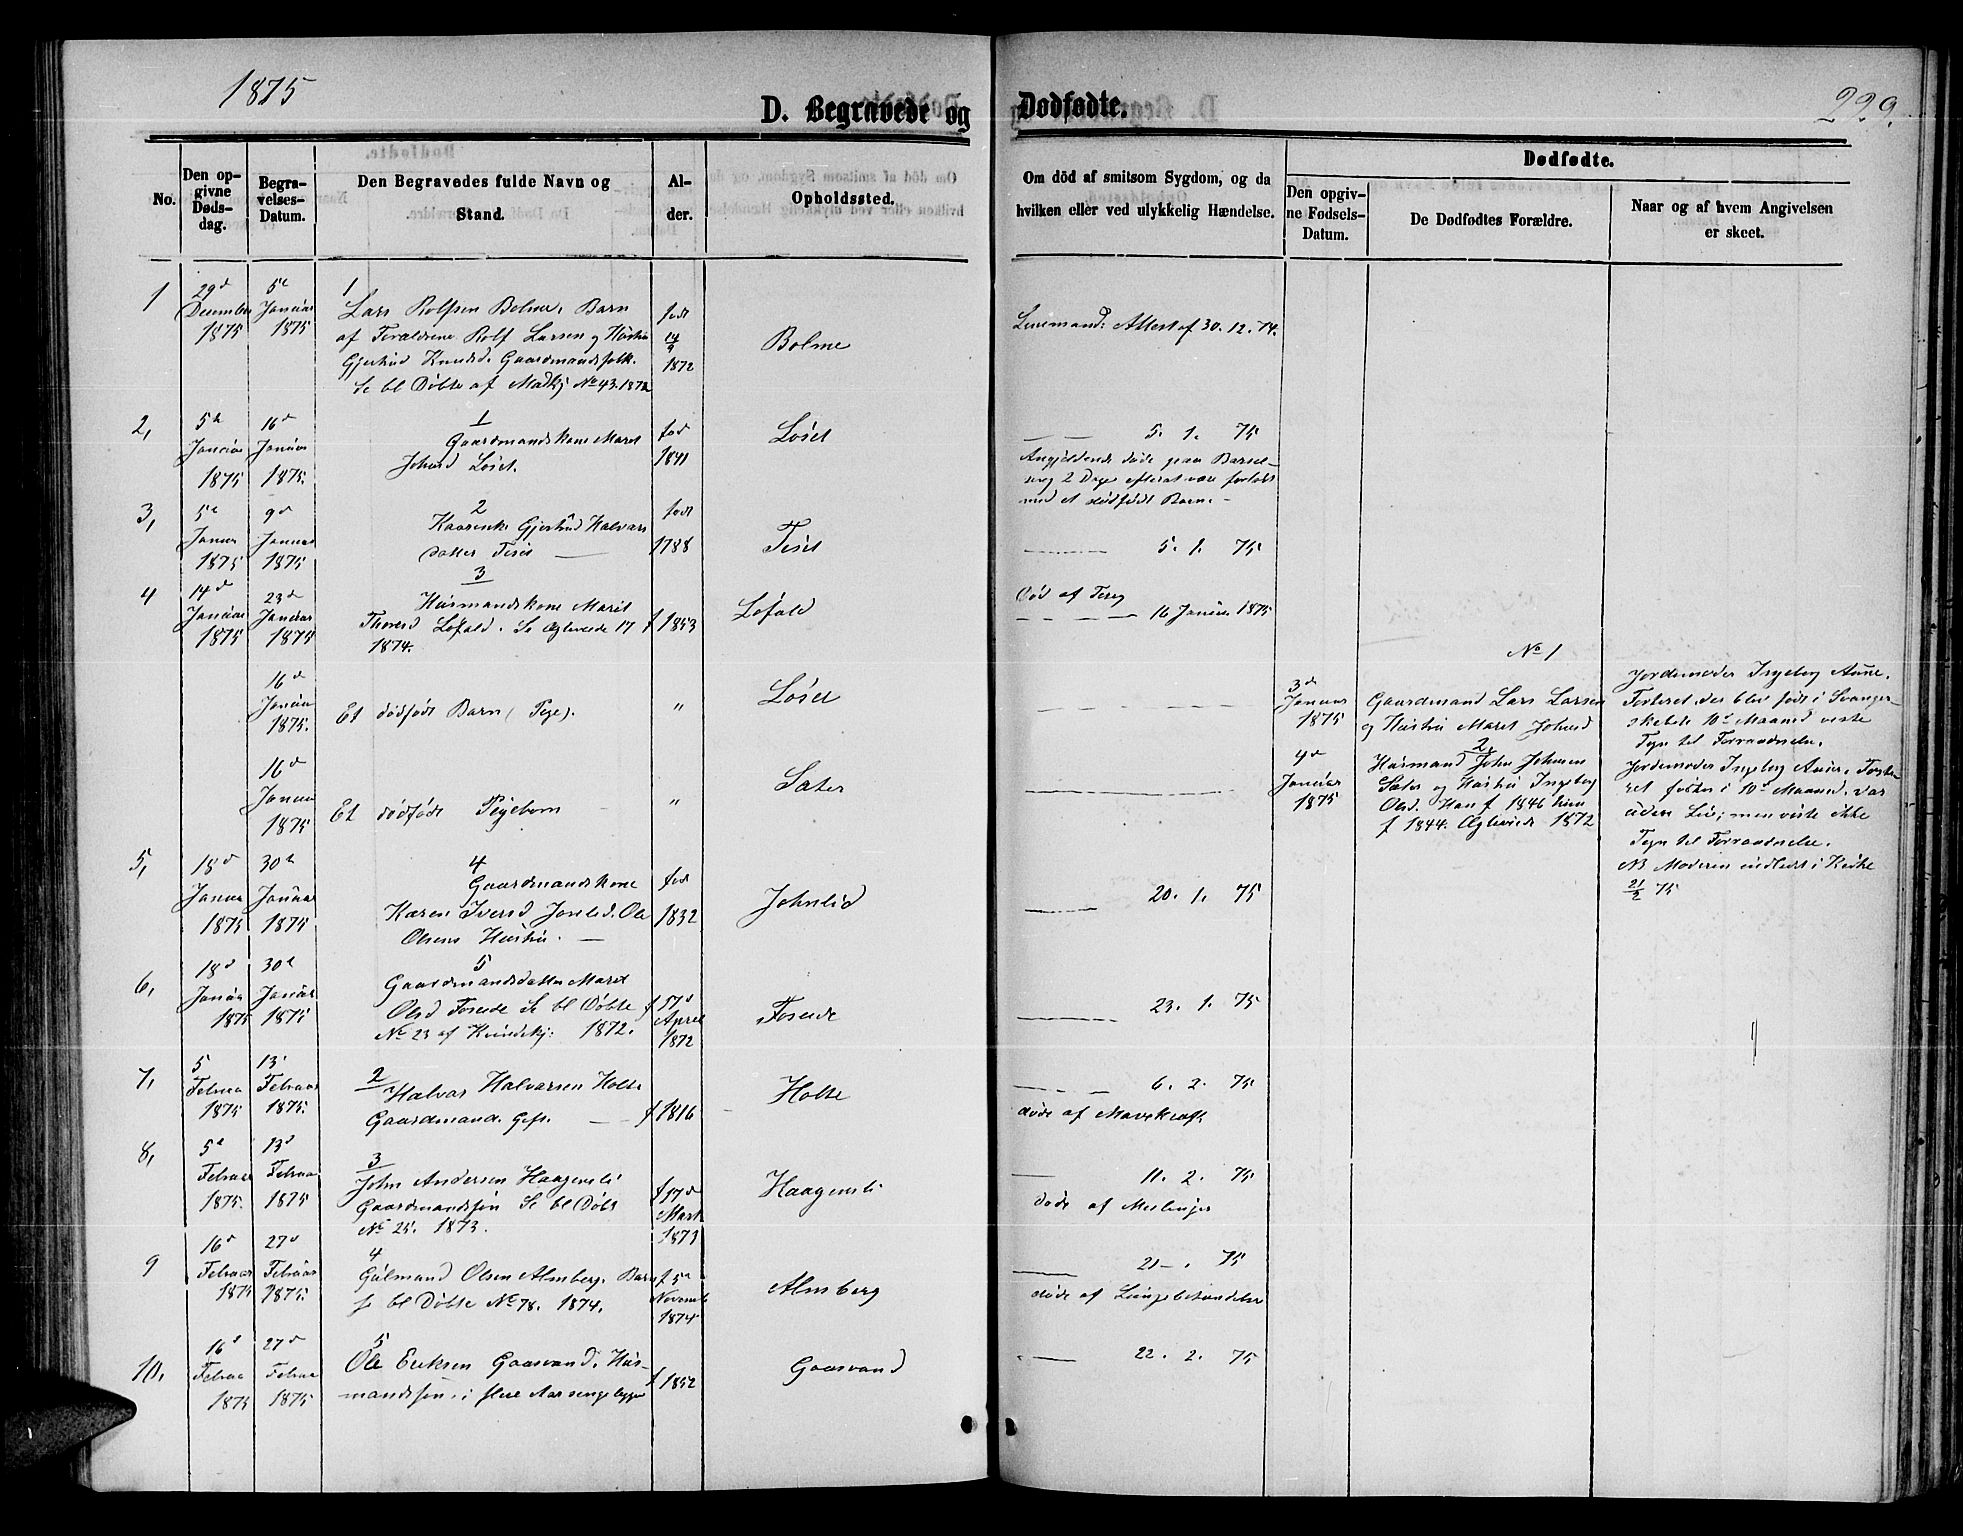 1875
D. Begravede og Dødfødte.
229.
No.
Den opgivne Døds-dag.
Begra-velses-Datum.
Den Begravedes fulde Navn og Stand.
Al-der.
Opholdssted.
Om död af smitsom Sygdom, og da
hvilken eller ved ulykkelig Hændelse.
Dødfødte.
Den opgiv-ne Fødsels-Datum.
De Dødfødtes Forældre.
Naar og af hvem Angivelsen
er skeet.
1
29d December 1875
5t Januar 1875
1
Lars Rolfsen Bolme, Barn
af Forældrene Rolf Larsen og Hustru
Gjertrud Knudsd. Gaardmandsfolk.
Se bl Døbte af Mandkj No 43. 1872
født 14/9 1872
Bolme
Lensmand: Attest af 30. 12. 74.
2,
5t Januar 1875
16d Januar 1875.
1
Gaardmandskone Maret
Johnsd Løset.
fød 1841
Løset
5. 1. 75
Angjeldende døde paa Barsel-
seng 2 Dage efterat være forløst
med et dødfødt Barn.
3,
5t Januar 1875
9d Januar 1875
2
Kaarenke Gjertrud Halvars
datter Tiset
født 1788
Tiset
5. 1. 75
4
14d Januar 1875
23d Januar 1875
3
Husmandskone Marit
Thoresd Løfald. Se Ægteviede 17
1874.
f 1853
Løfald
Død af
16 Januar 1875
16d Januar 1875.
Et dødfødt Barn (Pige).
"
Løset
3d Januar 1875
No 1
Gaardmand Lars Larsen
og Hustru Maret Johnsd
Jordemoder Ingeborg Aune.
Fosteret, der blev født i Svanger-
skabets 10d Maaned viste
Tegn til Forraadnelse.
16d Januar 1875
Et dødfødt Pigebarn
"
Sæter
9d Januar 1875
2
Husmand John Johnsen
Sæter og Hustru Ingeborg
Olsd. Han f 1846 hun
f 1844. Ægteviede 1872
Jordemoder Ingeborg Aune. Foste-
ret født i 10d Maaned, var
uden Liv; men viste ikke
Tegn til Forraadnelse.
NB Moderen indledt i Kirke
21/2 75
5,
18d Januar 1875
30t Januar 1875
4
Gaardmandskone
Karen Iversd Jonlid. Ole
Olsens Hustru.
fød 1832
Johnlid
20. 1. 75
6,
18d Januar 1875
30t Januar 1875
5
Gaardmandsdatter Maret
Olsd Foseide Se bl Døbte
No 23 af Kvindekj: 1872.
April 1872
Foseide
23. 1. 75
7,
5 Februar 1875
13 Februar 1875.
2
Halvar Halvarsen Holte
Gaardmand. Gift.
f 1816
Holte
6. 2. 75
døde af Mavekræft
8,
5t Februar 1875.
13d Februar 1875
3
John Andersen Haagensli
Gaardmandssøn Se bl Døbt
No 25. 1873.
f 17d Mart 1873
Haagensli
11. 2. 75
døde af Meslinger
9
16d Februar 1875
27d Februar 1875.
4
Gulmand Olsen Almberg. Barn
se bl Døbte No 78. 1874.
f 5t Novemb 1874
Almberg
21 - . 75
døde af Lungebetændelse
10,
16d Februar 1875
27d Februar 1875
5
Ole Eriksen Gaasvand. Hus-
mandssøn. i flere Aar sengeligger
f 1852
Gaasvand
22. 2. 75